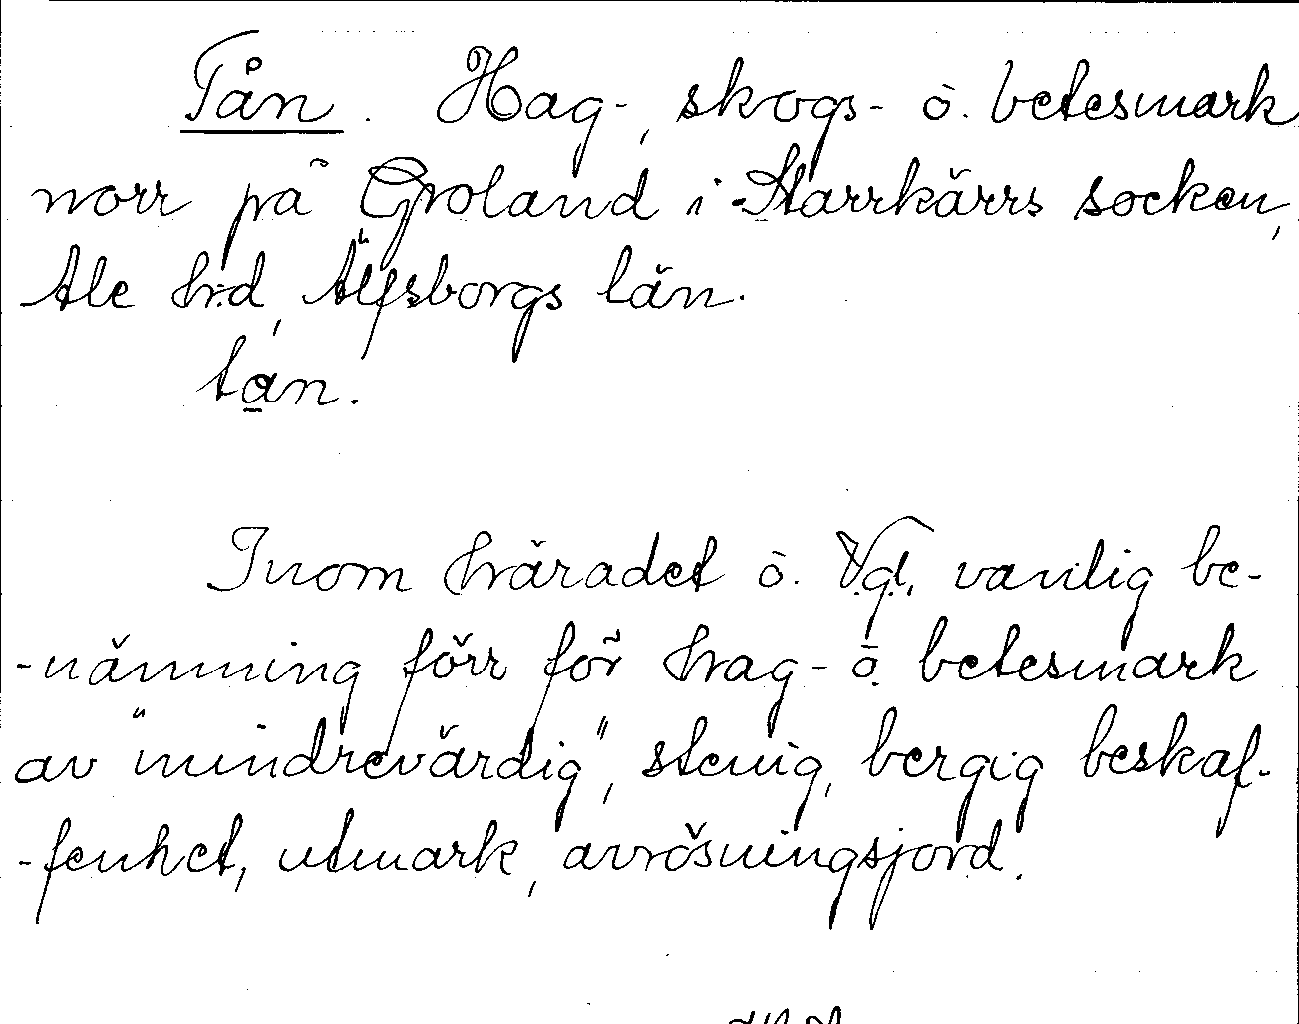 Tån. Hag-, skogs- o. betesmark
norr på Groland i Starrkärrs socken,
Ale hrd, Älfsborgs län.
tan.
Inom häradet o. Vgl. vanlig be-
-nämning förr för hag- o. betesmark
av "mindrevärdig", stenig, bergig beskaf-
-fenhet, utmark, avrösningsjord.